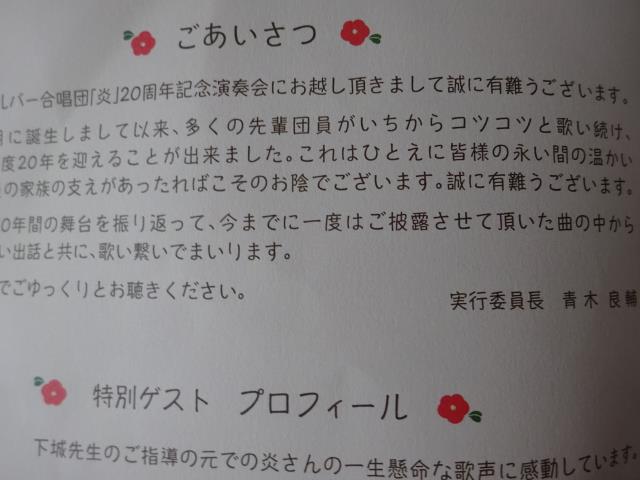 ごあいさつ
ルバー合唱団「炎」20周年記念演奏会にお越し頂きまして誠に有難うございます。
に誕生しまして以来、多くの先輩団員がいちからコツコツと歌い続け、
度20年を迎えることが出来ました。これはひとえに皆様の永い間の温かい
の家族の支えがあったればこそのお陰でございます。誠に有難うございます。
0年間の舞台を振り返って、今までに一度はご披露させて頂いた曲の中から
い出話と共に、歌い繋いでまいります。
でごゆっくりとお聴きください。
実行委員長 青木 良輔
特別ゲスト プロフィール
下城先生のご指導の元での炎さんの一生懸命な歌声に感動しています。